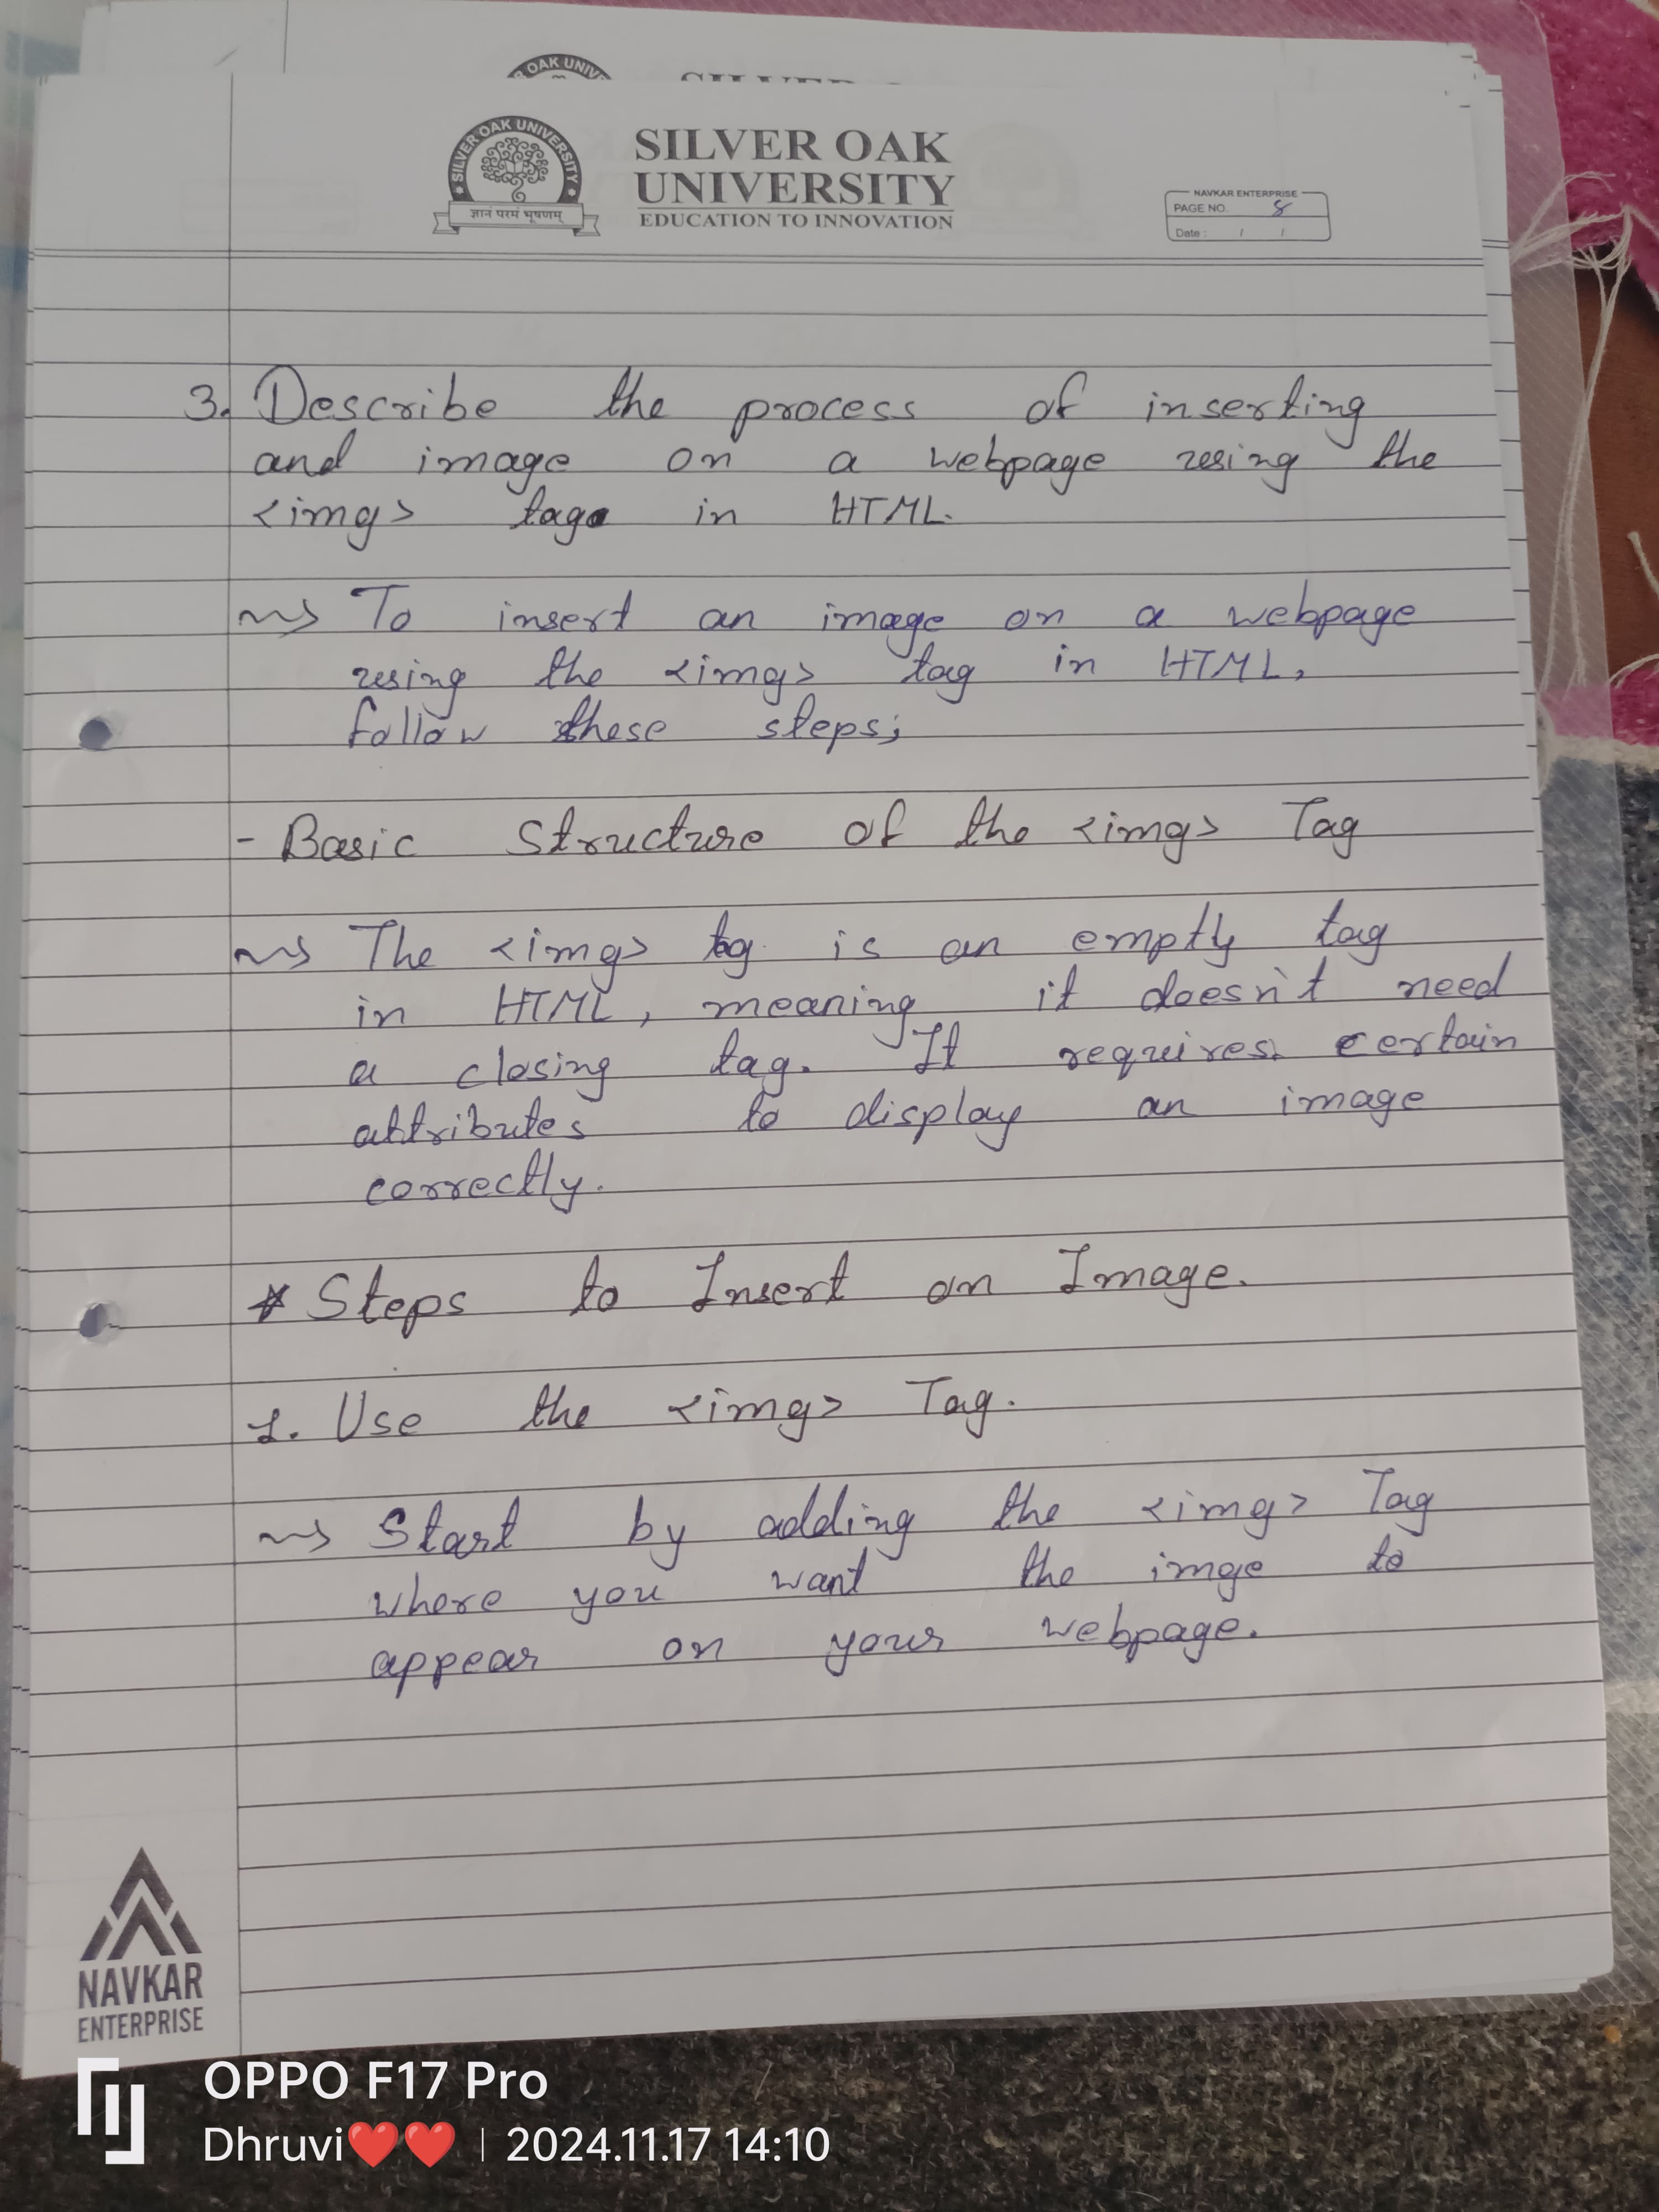 OAK UNIV
SILVER OAK UNIVERSITY
ज्ञानं परमं भूषणम्
SILVER OAK
UNIVERSITY
EDUCATION TO INNOVATION
NAVKAR ENTERPRISE
PAGE NO. 8
Date : / /
3. Describe the process of inserting
and image on a webpage using the
<img> tag in HTML.
~> To insert an image on a webpage
using the <img> tag in HTML,
follow these steps;
- Basic Structure of the <img> Tag
~> The <img> tag is an empty tag
in HTML, meaning it doesn't need
a closing tag. It requires certain
attributes to display an image
correctly.
* Steps to Insert an Image.
1. Use the <img> Tag.
~> Start by adding the <img> Tag
where you want the imge to
appear on your webpage.
NAVKAR
ENTERPRISE
OPPO F17 Pro
Dhruvi❤️❤️ | 2024.11.17 14:10